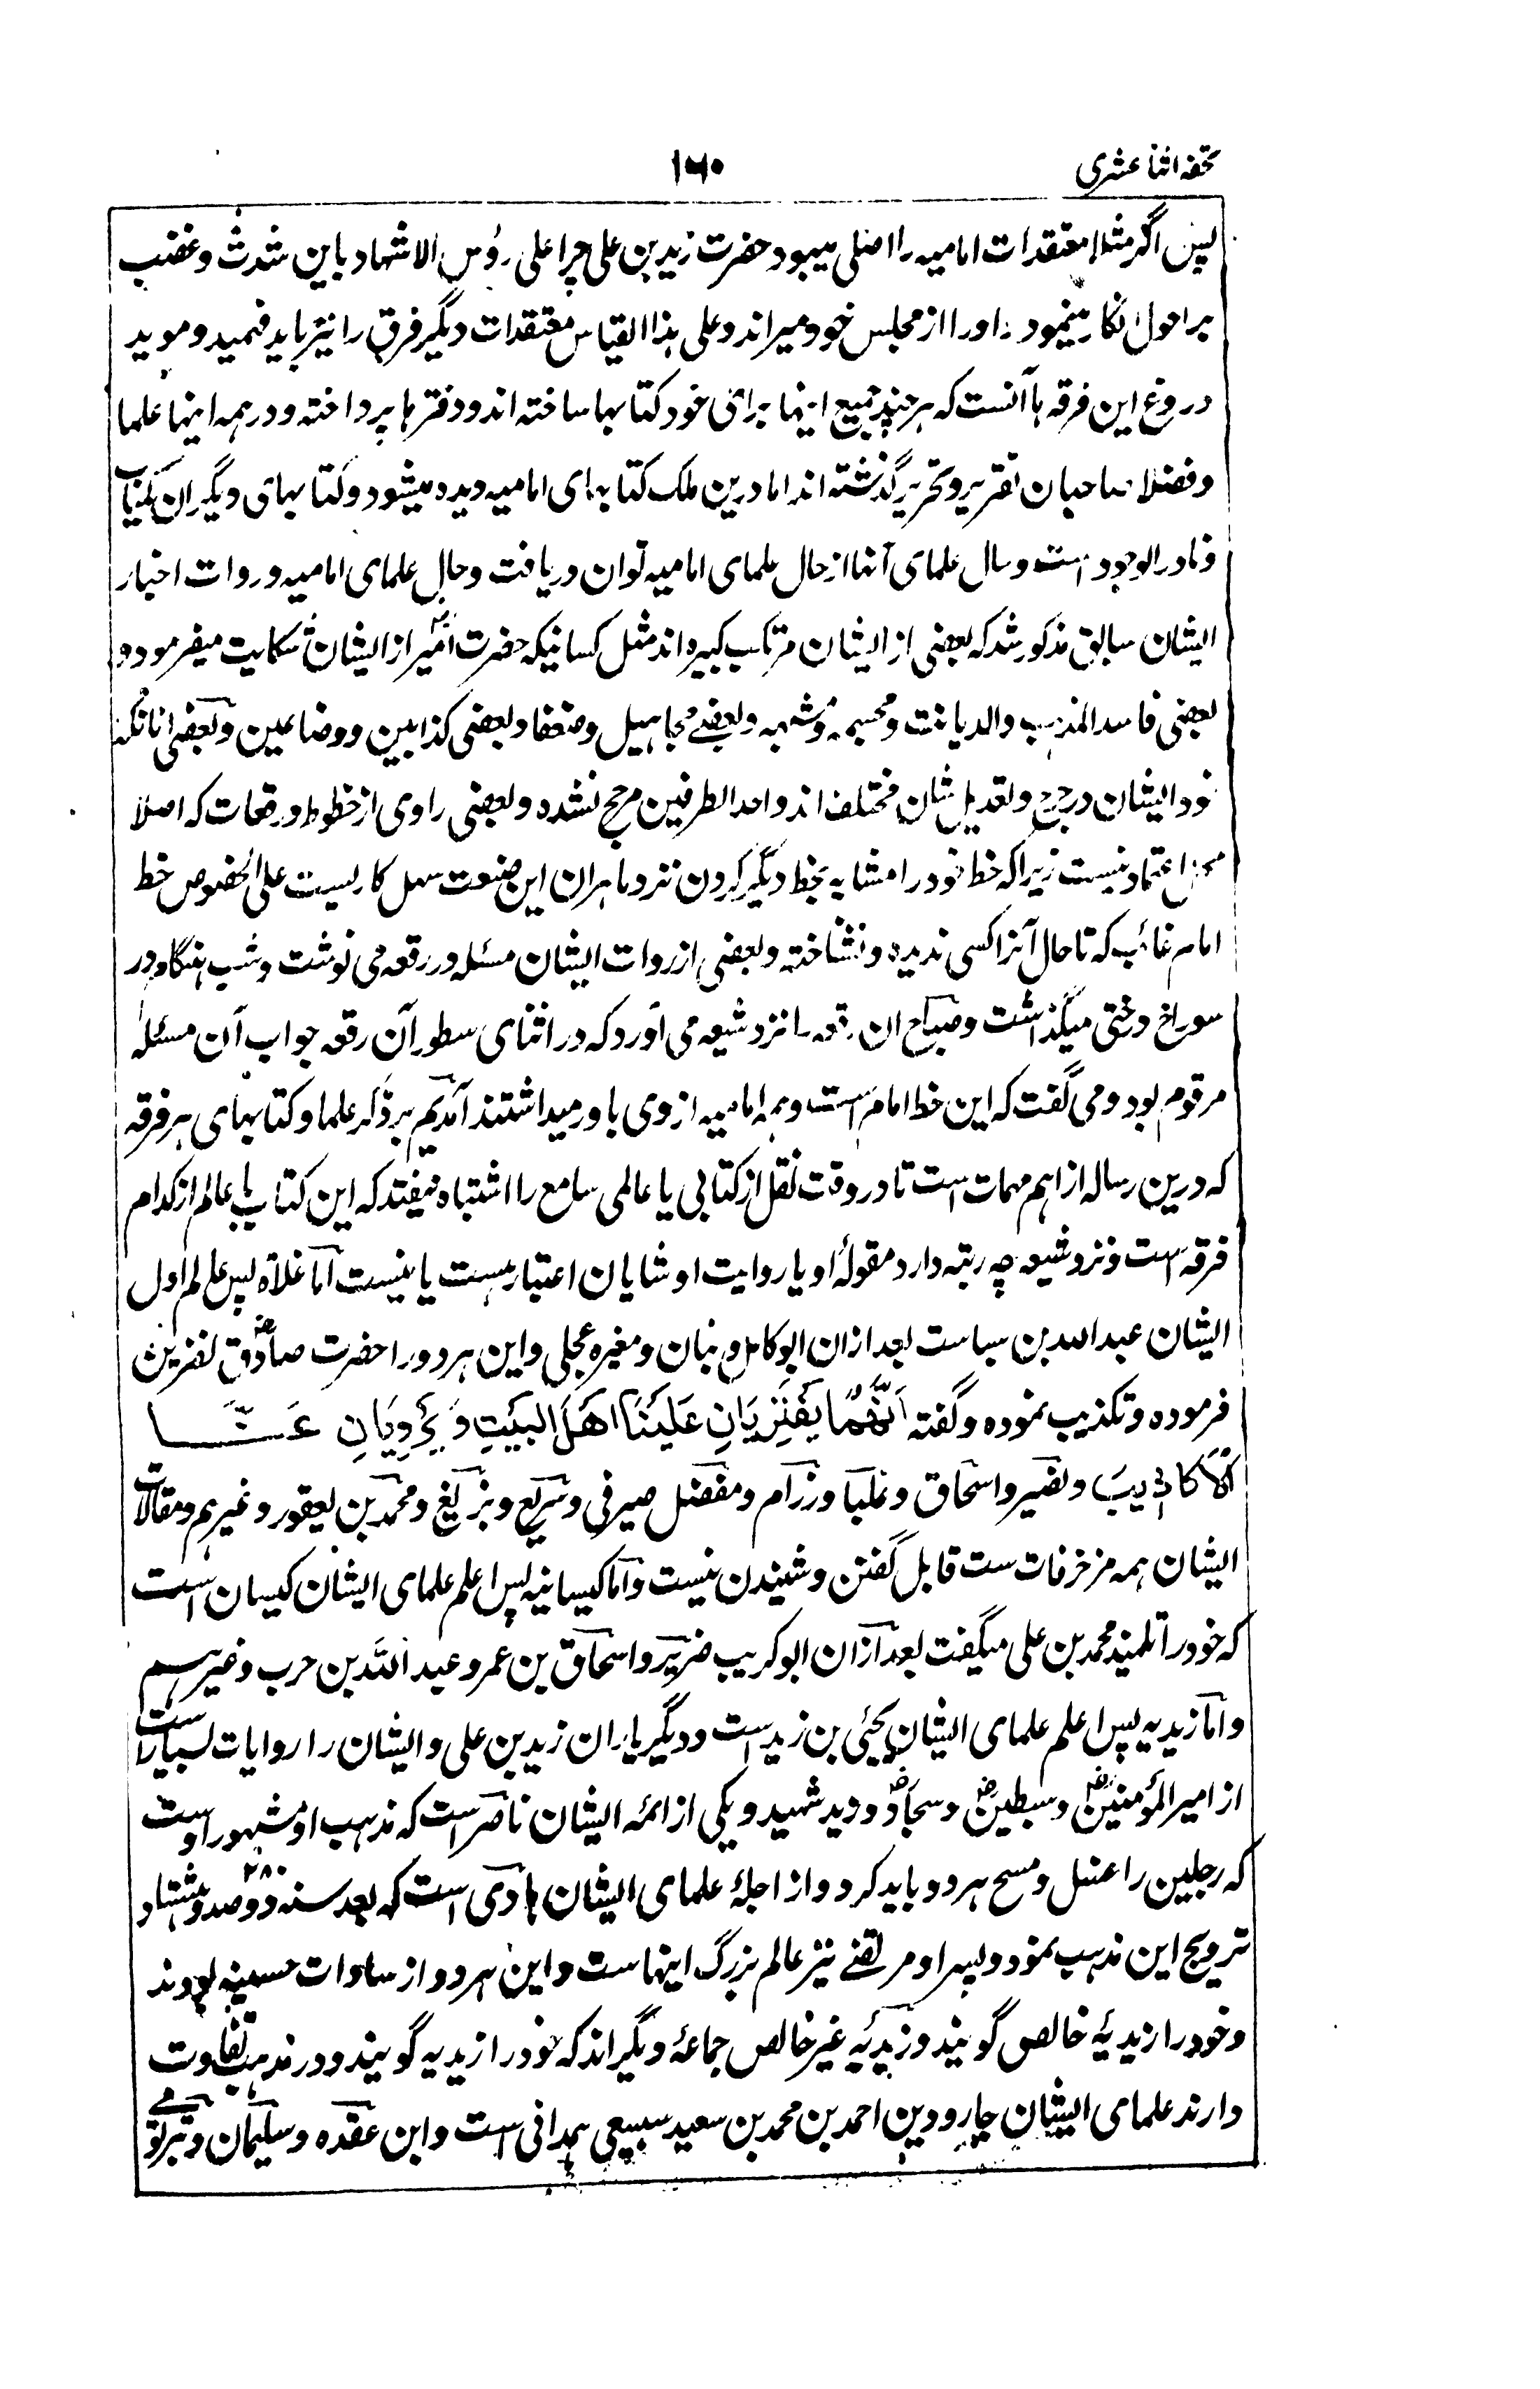 تحفہ اثنا عشری
۱۶۰
پس اگر مثلا معتقدات امامیہ را اصلی میبود حضرت زید بن علی چرا علی رؤس الاشهاد باین شدت و غضب
بر احول انکار مینمود و اورا از مجلس خود میراند و علی هذا القیاس معتقدات دیگر فرق را نیز باید فهمید و موید
دروغ این فرقہ ها آنست کہ هر چند جمیع اینها برای خود کتابها ساختہ اند و دفترها پرداختہ و در همہ اینها علما
و فضلا صاحبان تقریر و تحریر گذشتہ اند اما درین ملک کتابهای امامیہ دیدہ میشود و کتابهای دیگران کمیاب
و نادر الوجود است و حال علمای آنها از حال علمای امامیہ توان دریافت و حال علمای امامیہ و روات اخبار
ایشان سابق مذکور شد کہ بعضی از ایشان مرتکب کبیرہ اند مثل کسانیکہ حضرت امیر از ایشان شکایت میفرمود و
بعضی فاسد المذهب والدیانت و مجسمہ و مشبهہ و بعضے مجاهیل و ضعفا و بعضی کذابین و وضاعین و بعضی انانکہ
خود ایشان در جرح و تعدیل شان مختلف اند و احد الطرفین مرجح نشدہ و بعضی راوی از خطوط و رقعات کہ اصلا
محل اعتماد نیست زیرا کہ خط خود را مشابہ بخط دیگر کردن نزد ماهران این صنعت سهل کاریست علی الخصوص خط
امام غائب کہ تا حال آنرا کسی ندیدہ و نشناختہ و بعضی از روات ایشان مسئلہ در رقعہ می نوشت و شب هنگام در
سوراخ درختی میگذاشت و صباح ان رقعہ را نزد شیعہ می آورد کہ در اثنای سطور آن رقعہ جواب آن مسئلہ
مرقوم بود و می گفت کہ این خط امام است و همہ امامیہ از وی باور میداشتند آمدیم بر ذکر علما و کتابهای هر فرقہ
کہ درین رسالہ از اهم مهمات است تا در وقت نقل از کتابی یا عالمی سامع را اشتباہ نیفتد کہ این کتاب یا عالم از کدام
فرقہ است و نزد شیعہ چہ رتبہ دارد مقولۂ او یا روایت او شایان اعتبار هست یا نیست اما غلاة پس عالم اول
ایشان عبد الله بن سباست بعد ازان ابو کامل و بنان و مغیرہ عجلی و این هر دو را حضرت صادقؓ نفرین
فرمودہ و تکذیب نمودہ و گفتہ اَنَّهُمَا يَفْتَرِيَانِ عَلَيْنَا اَهْلَ البَيْتِ وَ يَرْوِيَانِ عَنَّــا
الأَكَاذِيبَ و نصیر و اسحاق و علبا و زرام و مفضل صیرفی و سریع و بزیغ و محمد بن یعقور و غیرهم و مقالات
ایشان همہ مزخرفات ست قابل گفتن و شنیدن نیست و اما کیسانیہ پس اعلم علمای ایشان کیسان است
کہ خود را تلمیذ محمد بن علی میگفت بعد ازان ابو کریب ضریر و اسحاق بن عمر و عبد الله بن حرب و غیرهم
و اما زیدیہ پس اعلم علمای ایشان یحیی بن زید است و دیگر یاران زید بن علی و ایشان را روایات بسیار است
از امیر المؤمنینؓ و سبطینؓ و سجادؓ و زید شهید و یکی از ائمہ ایشان ناصر است کہ مذهب او مشهور است
کہ رجلین را غسل و مسح هر دو باید کرد و از اجلۂ علمای ایشان هادی است کہ بعد سنہ ۲۸۰ دو صد و هشتاد
ترویج این مذهب نمود و پسر او مرتضے نیز عالم بزرگ اینهاست و این هر دو از سادات حسینیہ بودند
و خود را زیدیۂ خالص گویند و زیدیۂ غیر خالص جماعۂ دیگر اند کہ خود را زیدیہ گویند و در مذهب تفاوت
دارند علمای ایشان جارودین احمد بن محمد بن سعید سبیعی همدانی است و ابن عقدہ و سلیمان و تبر تومے